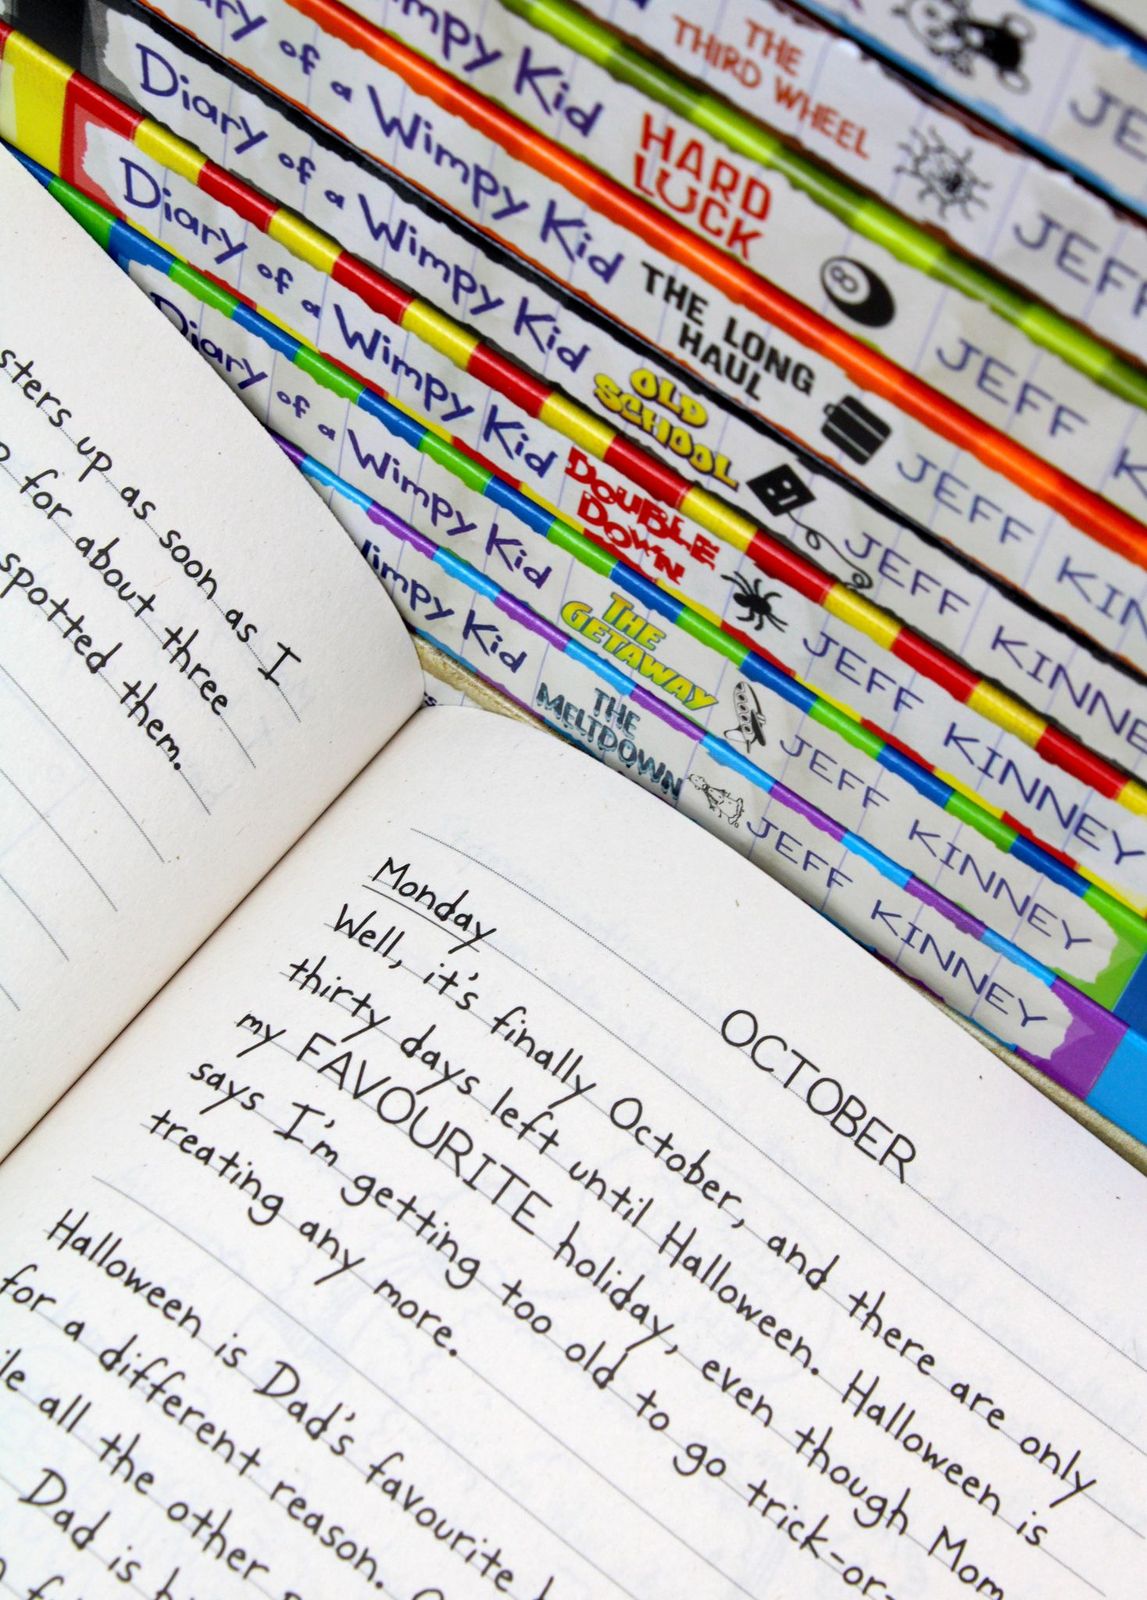 THE
THIRD WHEEL
JE
Wimpy Kid
HARD
LUCK
JEFF
of a Wimpy Kid
THE LONG
HAUL
JEFF K
Diary of a Wimpy Kid
OLD
SCHOOL
JEFF KIN
Diary of a Wimpy Kid
DOUBLE
DOWN
JEFF KINNE
Diary of a Wimpy Kid
THE
GETAWAY
JEFF KINNEY
Wimpy Kid
THE
MELTDOWN
JEFF KINNEY
sters up as soon as I
for about three
spotted them.
OCTOBER
Monday
Well, it's finally October, and there are only
thirty days left until Halloween. Halloween is
my FAVOURITE holiday, even though Mom
says I'm getting too old to go trick-or-
treating any more.
Halloween is Dad's favourite
for a different reason.
all the other
Dad is